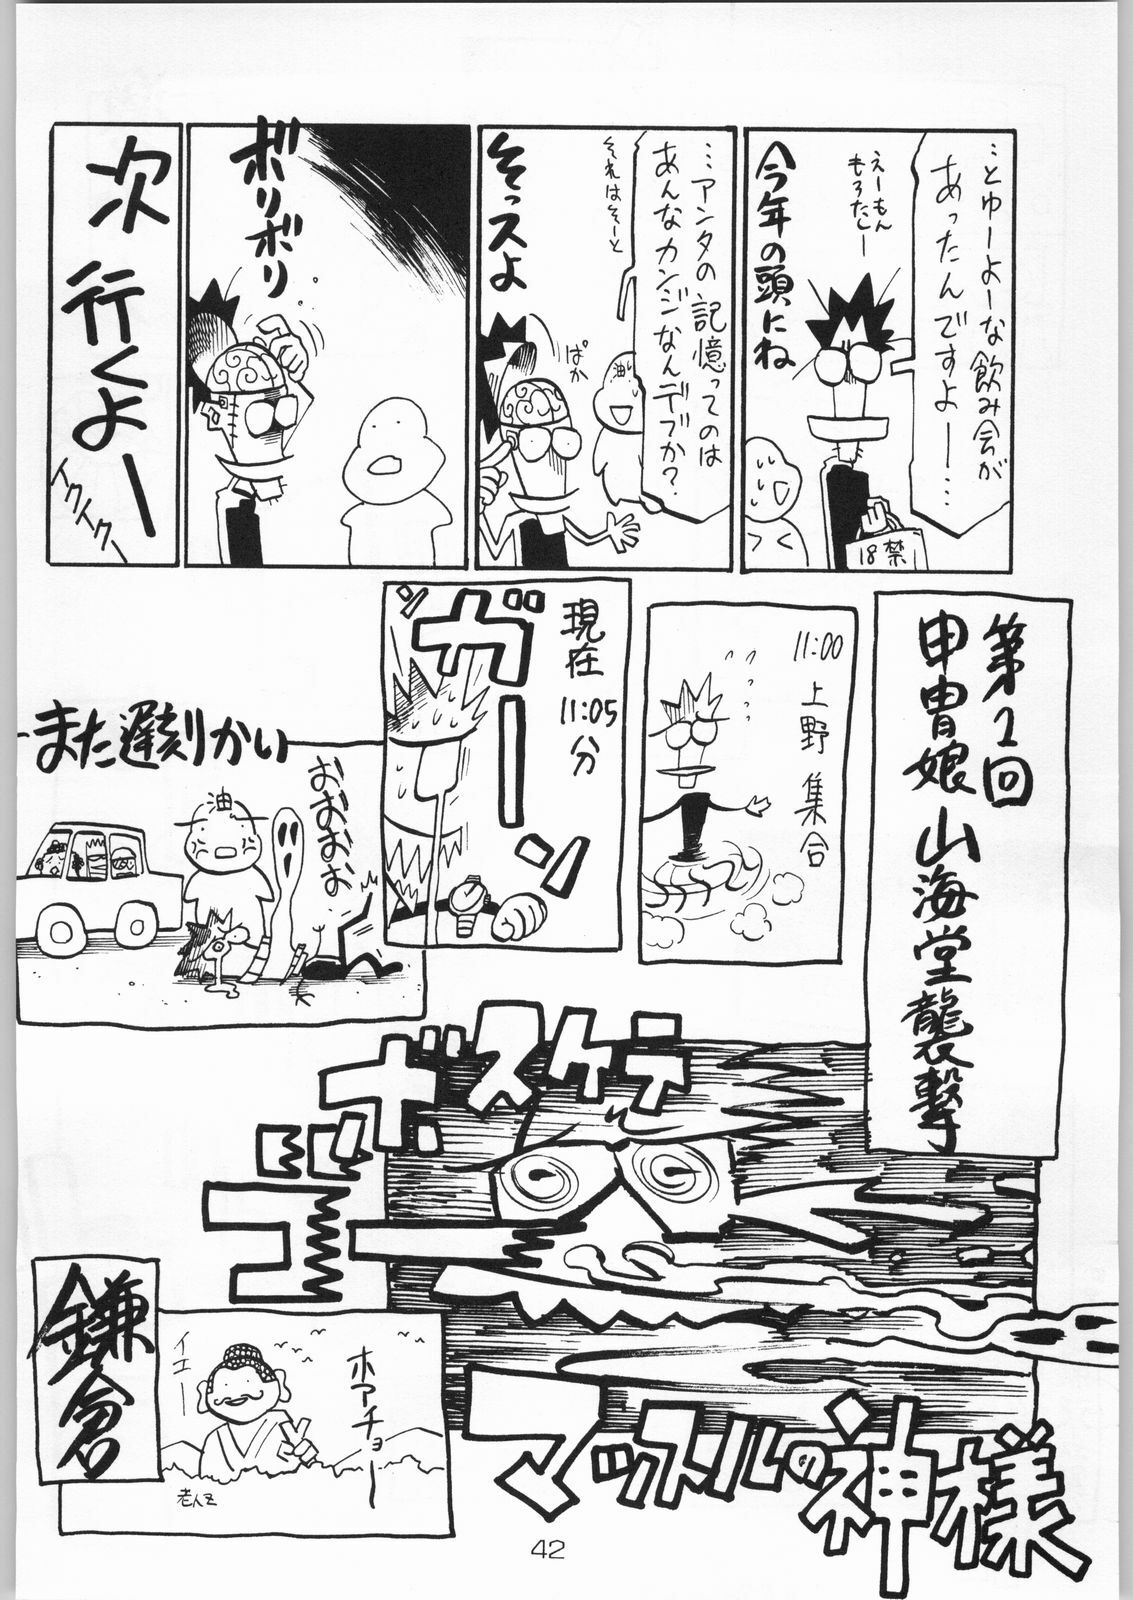 …とゆーよーな飲み会が
あったんですよー…
えーもん
もろたしー
今年の頭にね
18禁
…アンタの記憶ってのは
あんなカンジなんデスか?
それはそーと
そっスよ
油
ぱか
ボリボリ
次行くよー
イクイクー
第1回
甲冑娘山海堂襲撃
11:00上野集合
現在
11:05分
ガーーン
また遅刻かい
油
おおおお
ボスケテ
マッスルの神様
鎌倉
イエー
ホアチョー
老人Z
42